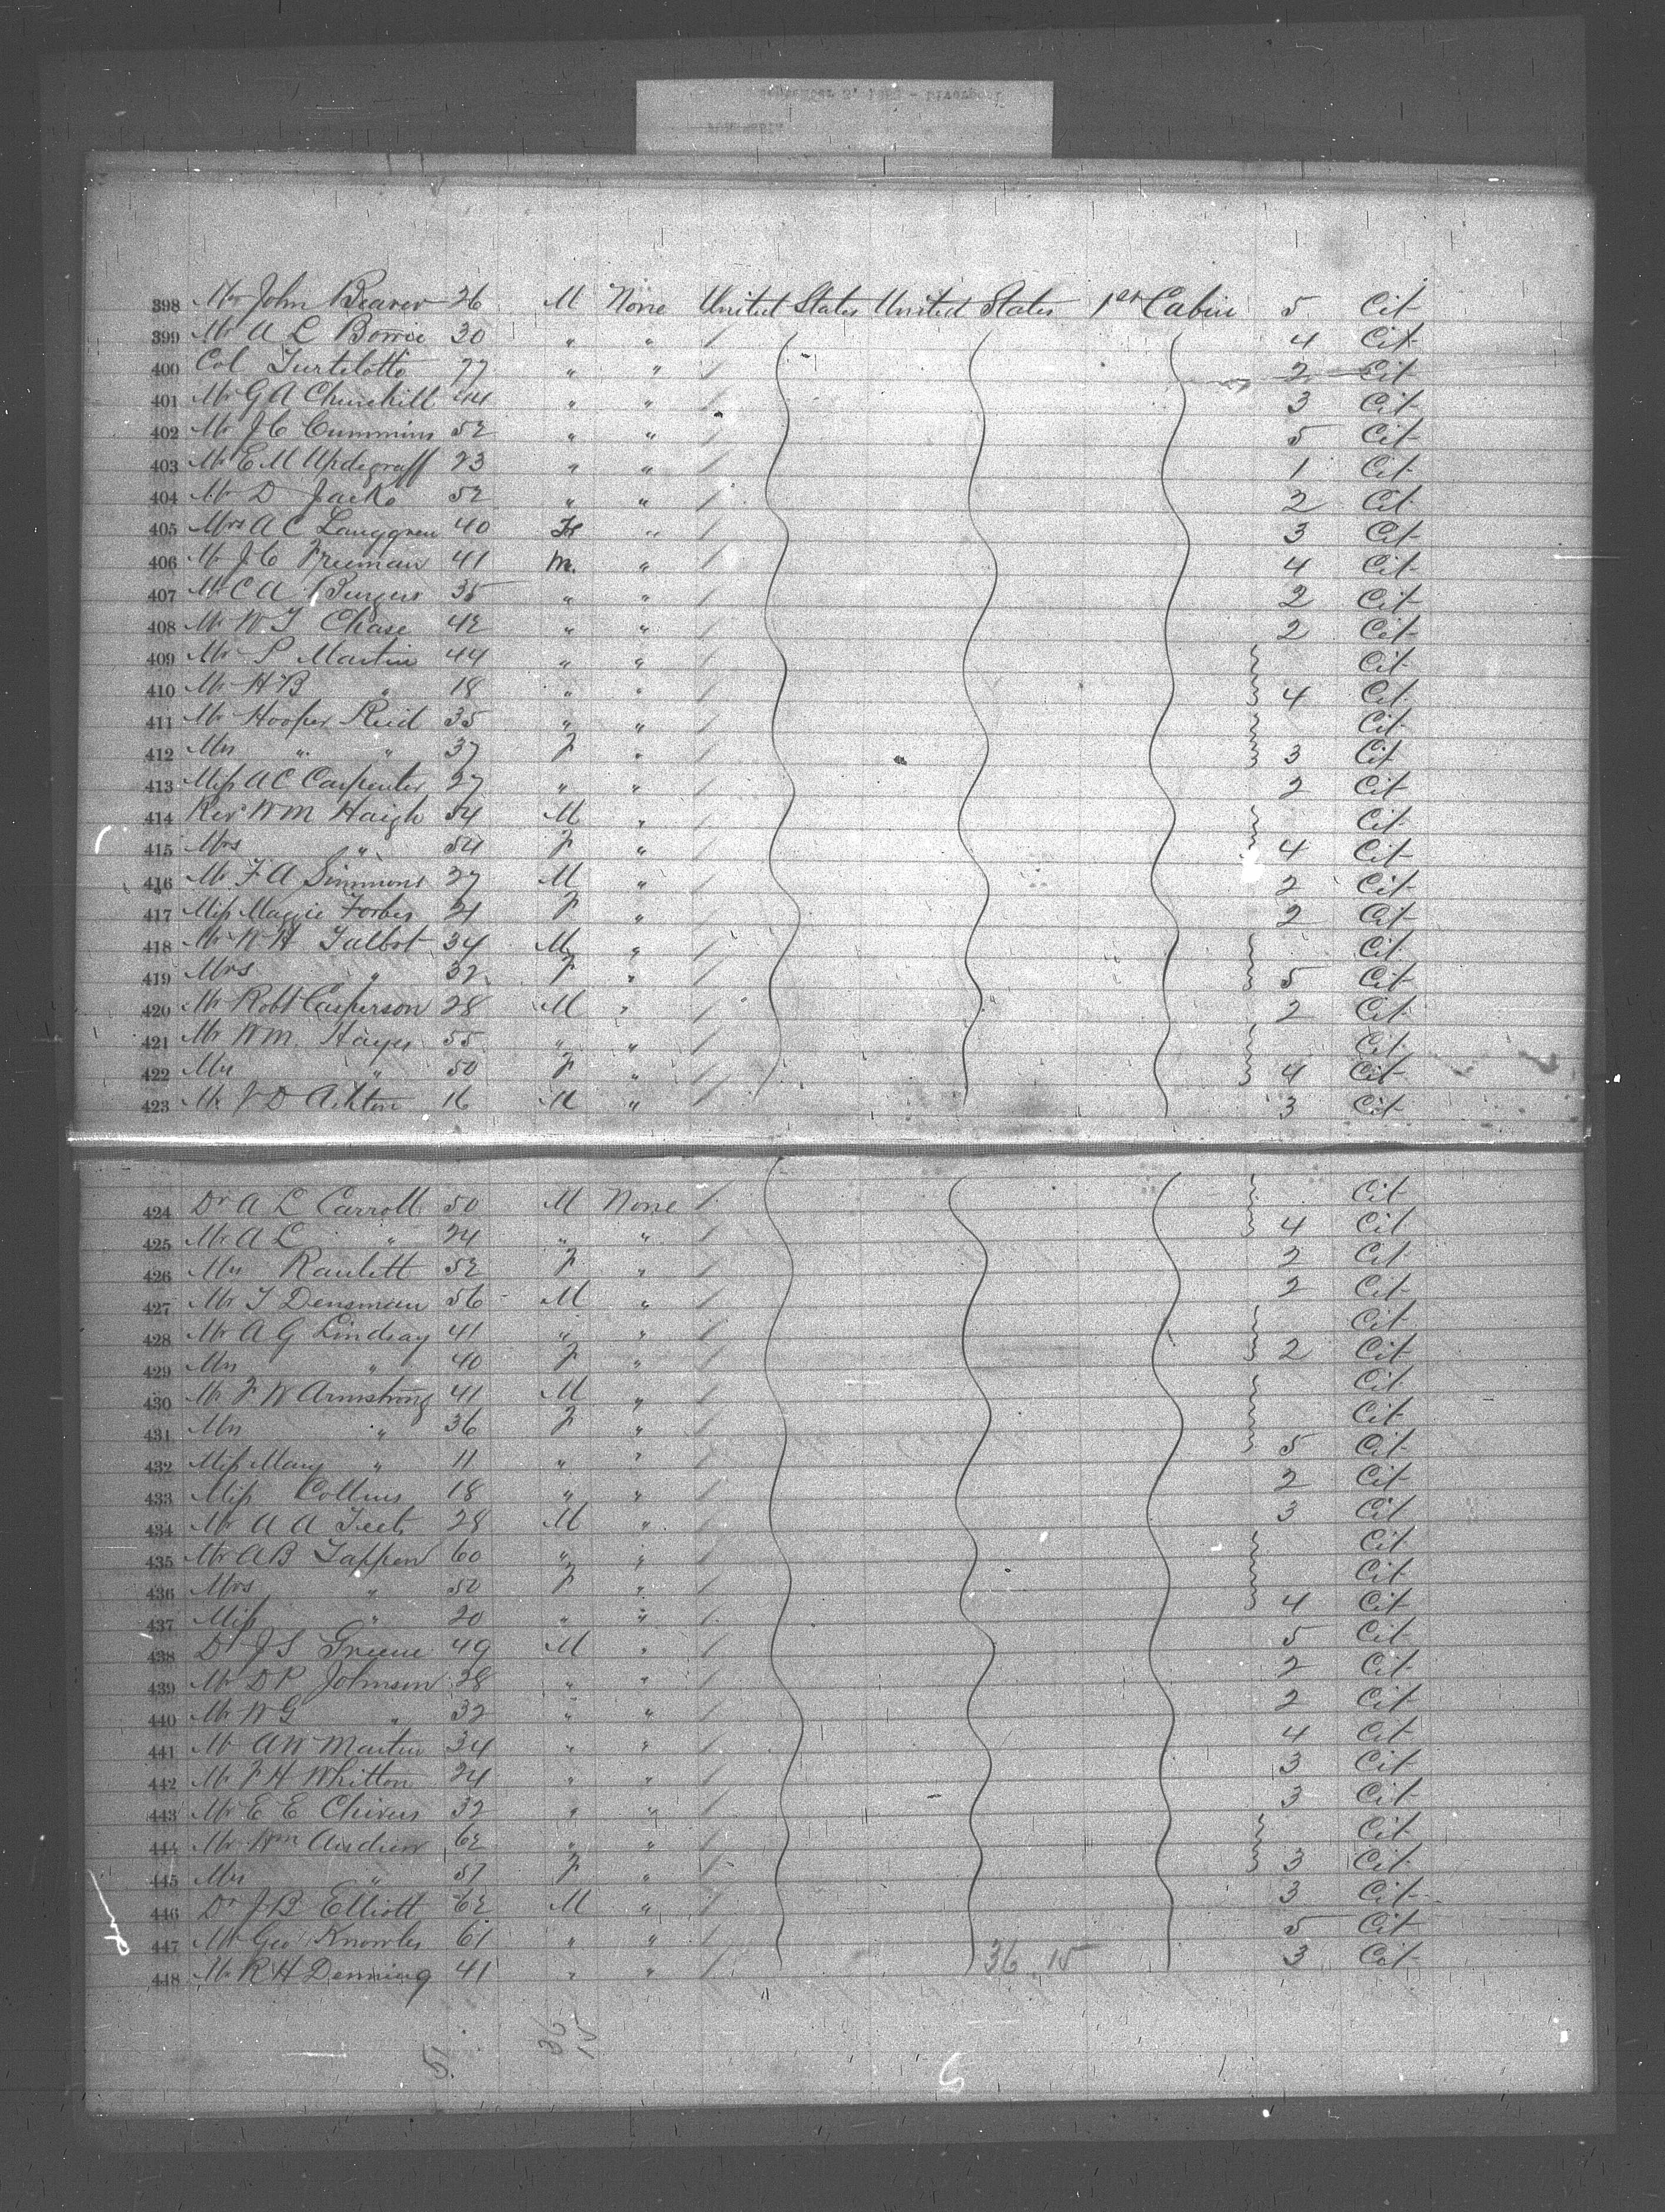 398 Mr John Beaver 26 M None United States United States 1st Cabin 5 Cit
399 Mr A L Bowie 30 " " 4 Cit
400 Col Turtelotte 77 " " 2 Cit
401 Mr G A Churchill 44 " " 3 Cit
402 Mr J C Cummins 52 " " 5 Cit
403 Mr E M Updegraff 23 " " 1 Cit
404 Mr D Jacks 52 " " 2 Cit
405 Mrs A C Langgren 40 F " 3 Cit
406 Mr J C Freeman 41 M. " 4 Cit
407 Mr C A Burgess 35 " " 2 Cit
408 Mr W T Chase 42 " " 2 Cit
409 Mr P Martin 44 " " Cit
410 Mr H B " 18 " " 4 Cit
411 Mr Hooper Reid 35 " " Cit
412 Mrs " " 37 F " 3 Cit
413 Miss A C Carpenter 27 " " 2 Cit
414 Rev Wm Haigh 54 M " Cit
415 Mrs " 54 F " 4 Cit
416 Mr F A Simmons 27 M " 2 Cit
417 Miss Maggie Forbes 21 F " 2 Cit
418 Mr W H Talbot 34 M " Cit
419 Mrs " 32 F " 5 Cit
420 Mr Robt Casperson 28 M " 2 Cit
421 Mr Wm. Hayes 55 " " Cit
422 Mrs " 50 F " 4 Cit
423 Mr J D Ashton 16 M " 3 Cit
424 Dr A L Carroll 50 M None Cit
425 Mr A L " 24 " " 4 Cit
426 Mrs Raulett 52 F " 2 Cit
427 Mr T Densman 56 M " 2 Cit
428 Mr A G Lindsay 41 " " Cit
429 Mrs " 40 F " 2 Cit
430 Mr F W Armstrong 41 M " Cit
431 Mrs " 36 F " Cit
432 Miss Mary " 11 " " 5 Cit
433 Miss Collins 18 " " 2 Cit
434 Mr A A Teets 28 M " 3 Cit
435 Mr A B Tappen 60 " " Cit
436 Mrs " 50 F " Cit
437 Miss " 20 " " 4 Cit
438 Dr J S Greene 49 M " 5 Cit
439 Mr D P Johnson 28 " " 2 Cit
440 Mr W G " 32 " " 2 Cit
441 Mr A W Martin 34 " " 4 Cit
442 Mr F H Whitton 24 " " 3 Cit
443 Mr E E Chivers 32 " " 3 Cit
444 Mr Wm 62 " " Cit
445 Mrs " 57 F " 3 Cit
446 Dr J B Elliott 62 M " 3 Cit
447 Mr Geo Knowles 61 " " 5 Cit
448 Mr R H Denning 41 " " 36 15 3 Cit
51. 36
15